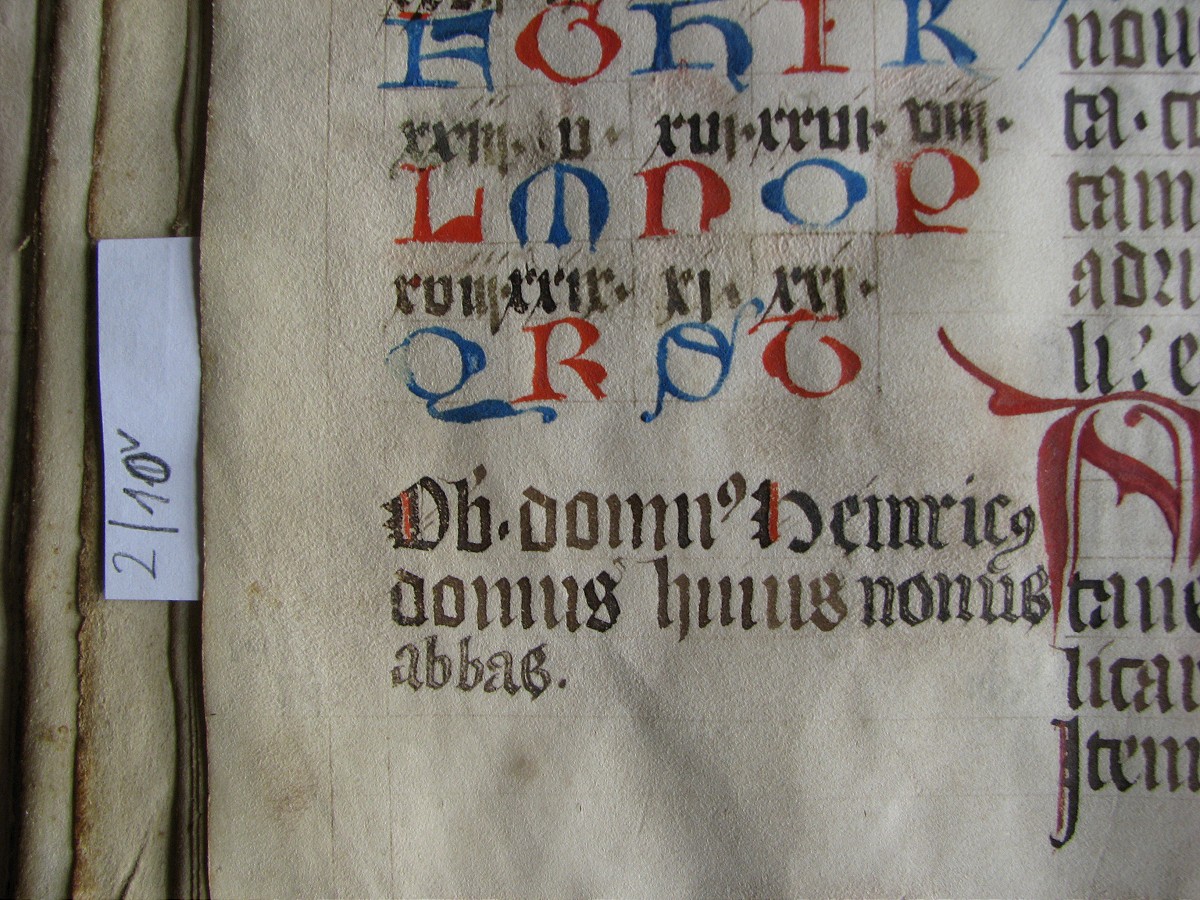 F G H I K
xxiij. v. xvj. xxvj. viij.
L M N O P
xviij. xxix. xj. xxj.
Q R S T
Ob. domnꝰ Heinricꝰ
domus huius nonus
abbas.
nou
ta.
tam
adru
li
tane
lican
Item
2/10v